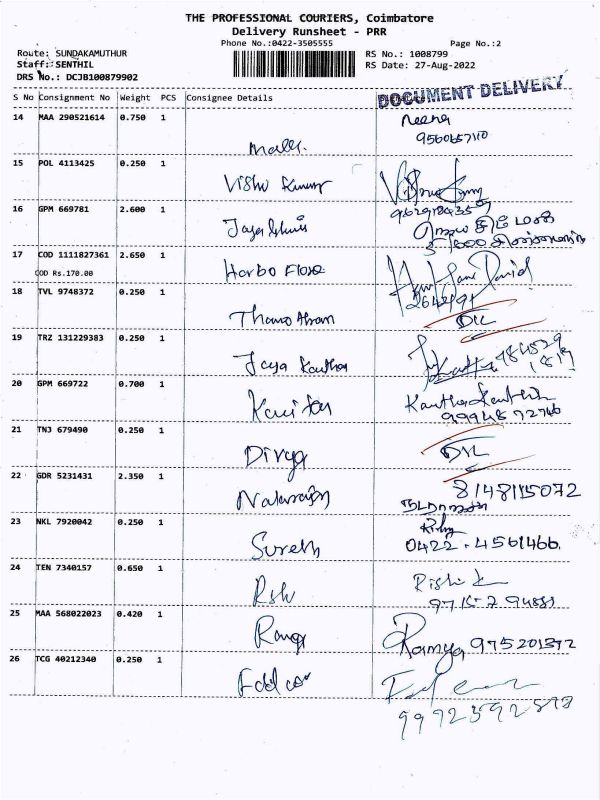 THE PROFESSIONAL COURIERS, Coimbatore
Delivery Runsheet - PRR
Phone No.:0422-3505555 Page No.:2
Route: SUNDAKAMUTHUR RS No.: 1008799
Staff: SENTHIL RS Date: 27-Aug-2022
DRS No.: DCJB100879902
S No Consignment No Weight PCS Consignee Details DOCUMENT DELIVERY
14 MAA 290521614 0.750 1 Neena
9560657110
15 POL 4113425 0.250 1 Vishu Kumar
16 GPM 669781 2.600 1
17 COD 1111827361 2.650 1 Herbo Flora
COD Rs.170.00
18 TVL 9748372 0.250 1 D/L
19 TRZ 131229383 0.250 1 Jaya Kantha
20 GPM 669722 0.700 1 Kavitha
21 TNJ 679490 0.250 1 Divya D/L
22 GDR 5231431 2.350 1 Natarajan 8148115072
நடராஜன்
23 NKL 7920042 0.250 1 Suresh 0422-4561466
24 TEN 7340157 0.650 1 Rishi
25 MAA 568022023 0.420 1 Ramya 975201372
26 TCG 40212340 0.250 1